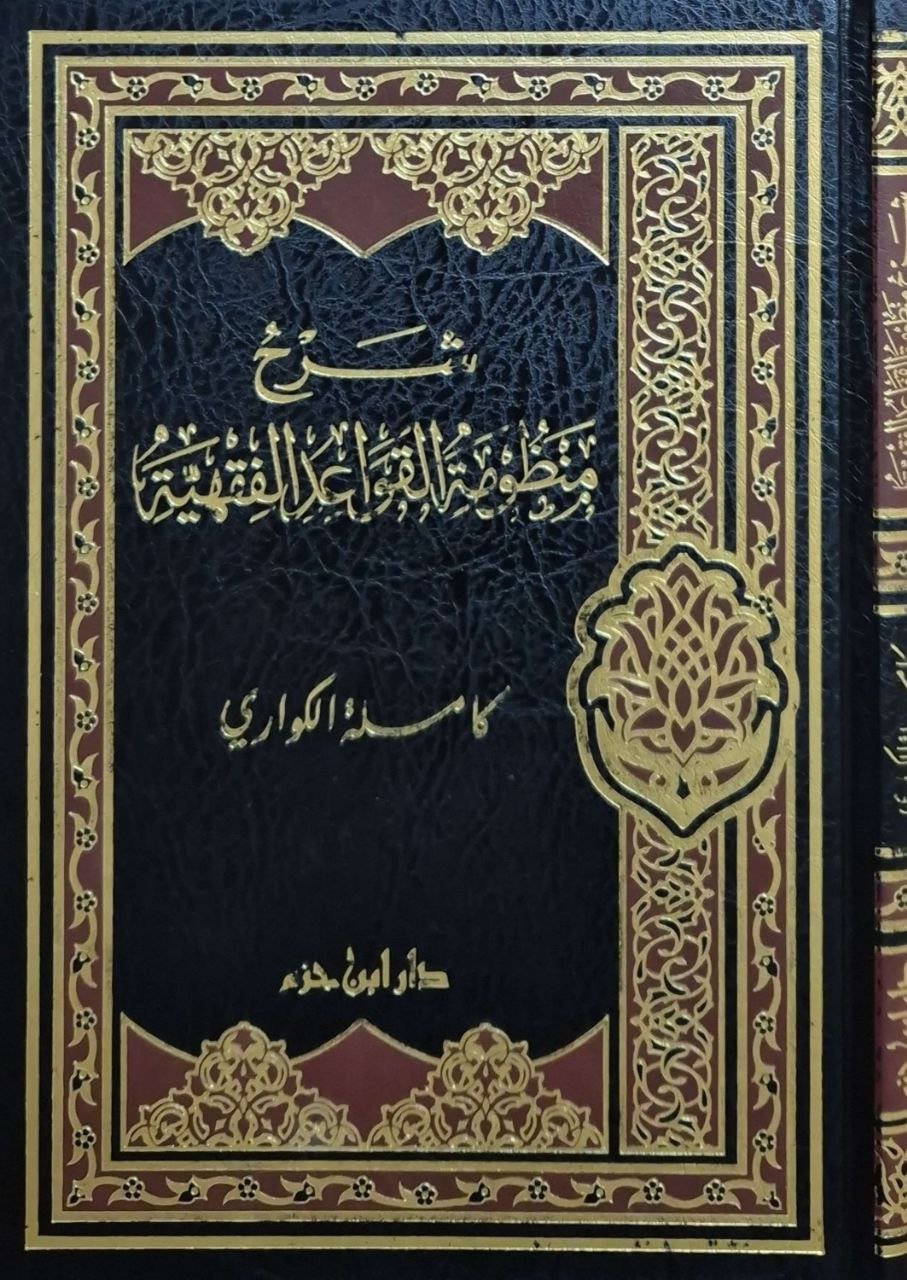 شَرْحُ
مَنْظُومَةُ القَوَاعِدِ الفِقْهِيَّةِ
كاملة الكواري
دار ابن حزم